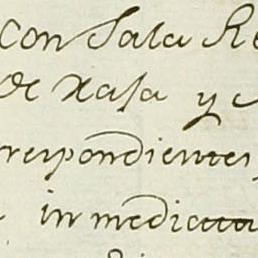 con Sala Re
de xasa y
respondientes
inmediata